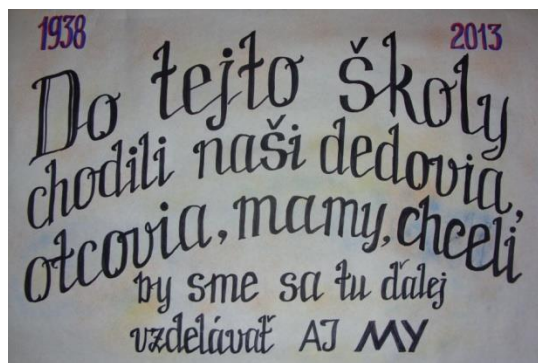 1938 2013
Do tejto školy
chodili naši dedovia,
otcovia, mamy, chceli
by sme sa tu ďalej
vzdelávať AJ MY